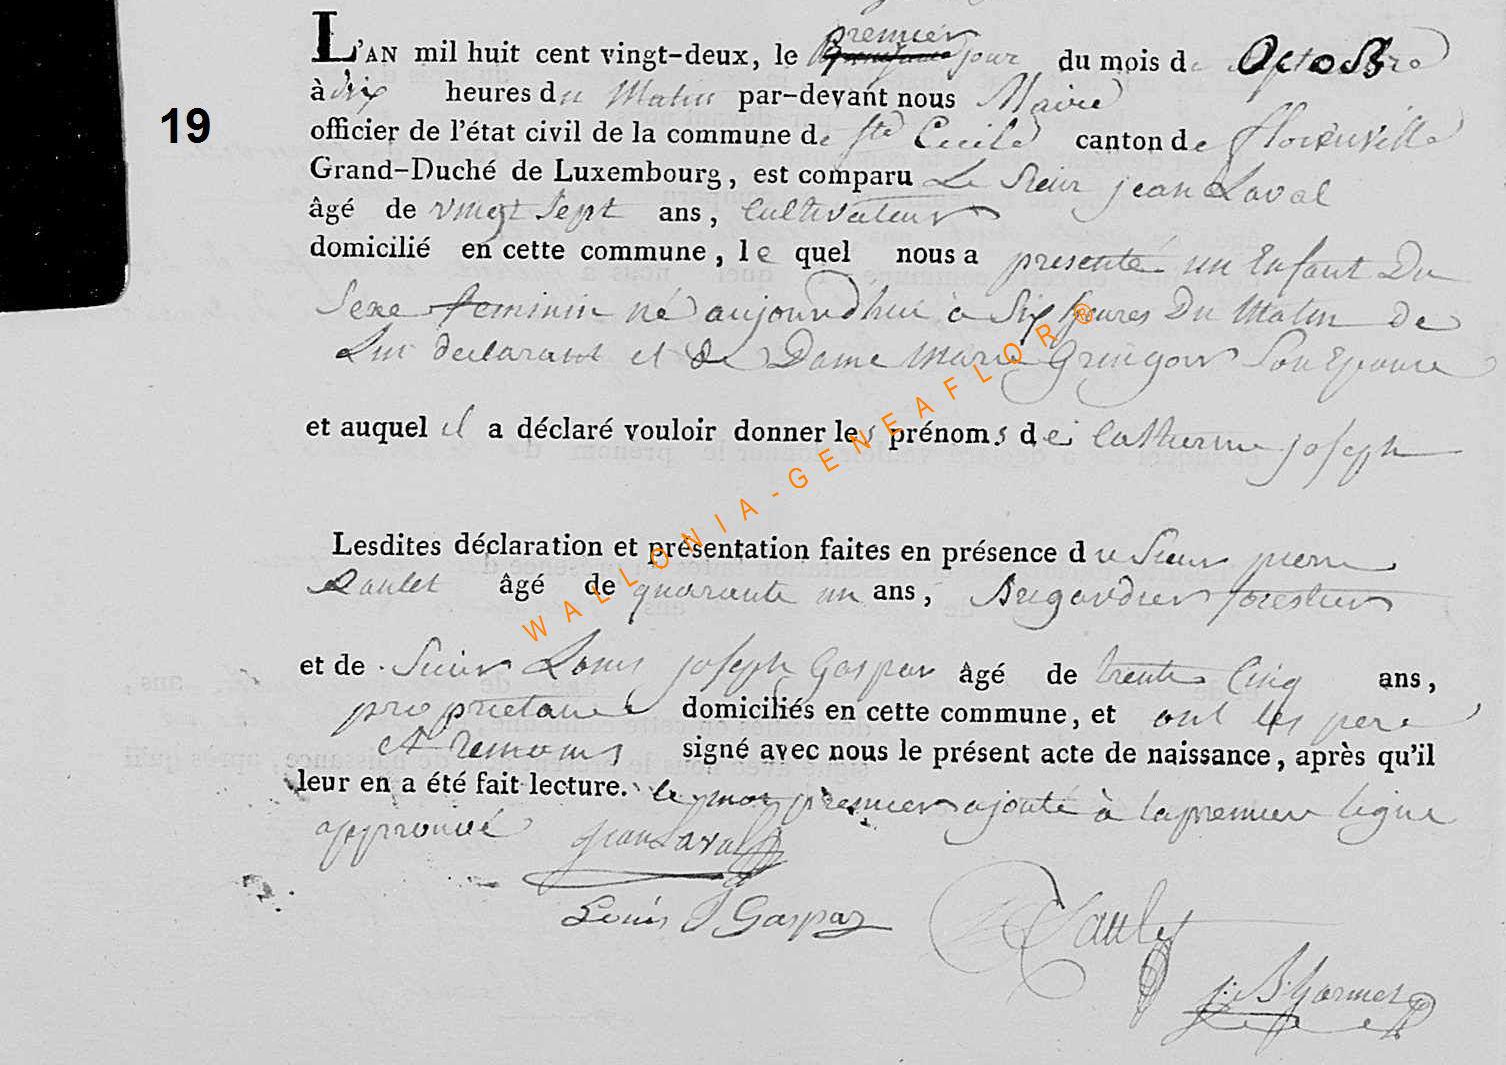 L'AN mil huit cent vingt-deux, le premier jour du mois de Octobre
19
à dix heures du Matin par-devant nous Maire
officier de l'état civil de la commune de Ste Cecile canton de florenville
Grand-Duché de Luxembourg, est comparu Le Sieur jean Laval
âgé de vingt Sept ans, Cultivateur
domicilié en cette commune, le quel nous a presenté un Enfant Du
Sexe feminin né aujourd'hui à Six heures Du Matin de
Lui declarant et de Dame Marie Gringoir Son Epouse
et auquel il a déclaré vouloir donner les prénoms de Catherine joseph
Lesdites déclaration et présentation faites en présence du Sieur pierre
Raulet âgé de quarante un ans, Brigardier forestier
et de Sieur Louis joseph Gaspar âgé de trente Cinq ans,
proprietaire domiciliés en cette commune, et ont les pere
et temoins signé avec nous le présent acte de naissance, après qu'il
leur en a été fait lecture. le mot premier ajouté à la premiere ligne
approuvé jean Laval
Louis J Gaspar
Raulet
WALLONIA-GENEAFLOR®